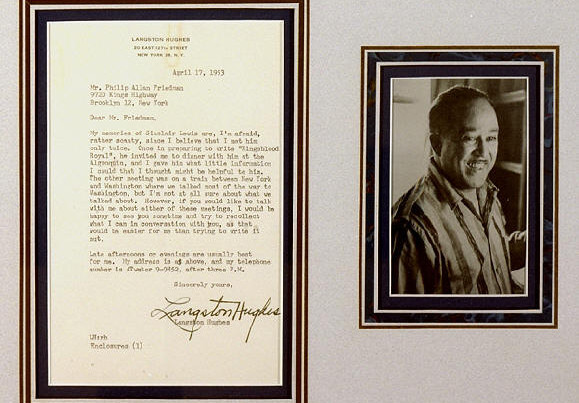 LANGSTON HUGHES
20 EAST 127TH STREET
NEW YORK 35, N. Y.
April 17, 1953
Mr. Philip Allan Friedman
9720 Kings Highway
Brooklyn 12, New York
Dear Mr. Friedman,
My memories of Sinclair Lewis are, I'm afraid,
rather scanty, since I believe that I met him
only twice. Once in preparing to write "Kingsblood
Royal", he invited me to dinner with him at the
Algonquin, and I gave him what little information
I could that I thought might be helpful to him.
The other meeting was on a train between New York
and Washington where we talked most of the way to
Washington, but I'm not at all sure about what we
talked about. However, if you would like to talk
with me about either of these meetings, I would be
happy to see you sometime and try to recollect
what I can in conversation with you, as that
would be easier for me than trying to write it
out.
Late afternoons or evenings are usually best
for me. My address is as above, and my telephone
number is 9-9452, after three P.M.
Sincerely yours,
Langston Hughes
Langston Hughes
Enclosures (1)